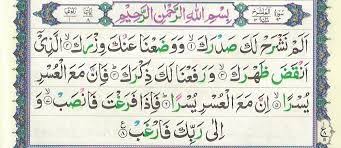 بِسْمِ اللهِ الرَّحْمٰنِ الرَّحِيْمِ
اَلَمْ نَشْرَحْ لَكَ صَدْرَكَ ۙ۝۱ وَوَضَعْنَا عَنْكَ وِزْرَكَ ۙ۝۲ الَّذِيْٓ
اَنْقَضَ ظَهْرَكَ ۙ۝۳ وَرَفَعْنَا لَكَ ذِكْرَكَ ؕ۝۴ فَاِنَّ مَعَ الْعُسْرِ
يُسْرًا ۙ۝۵ اِنَّ مَعَ الْعُسْرِ يُسْرًا ؕ۝۶ فَاِذَا فَرَغْتَ فَانْصَبْ ۙ۝۷ وَ
اِلٰى رَبِّكَ فَارْغَبْ ۝۸